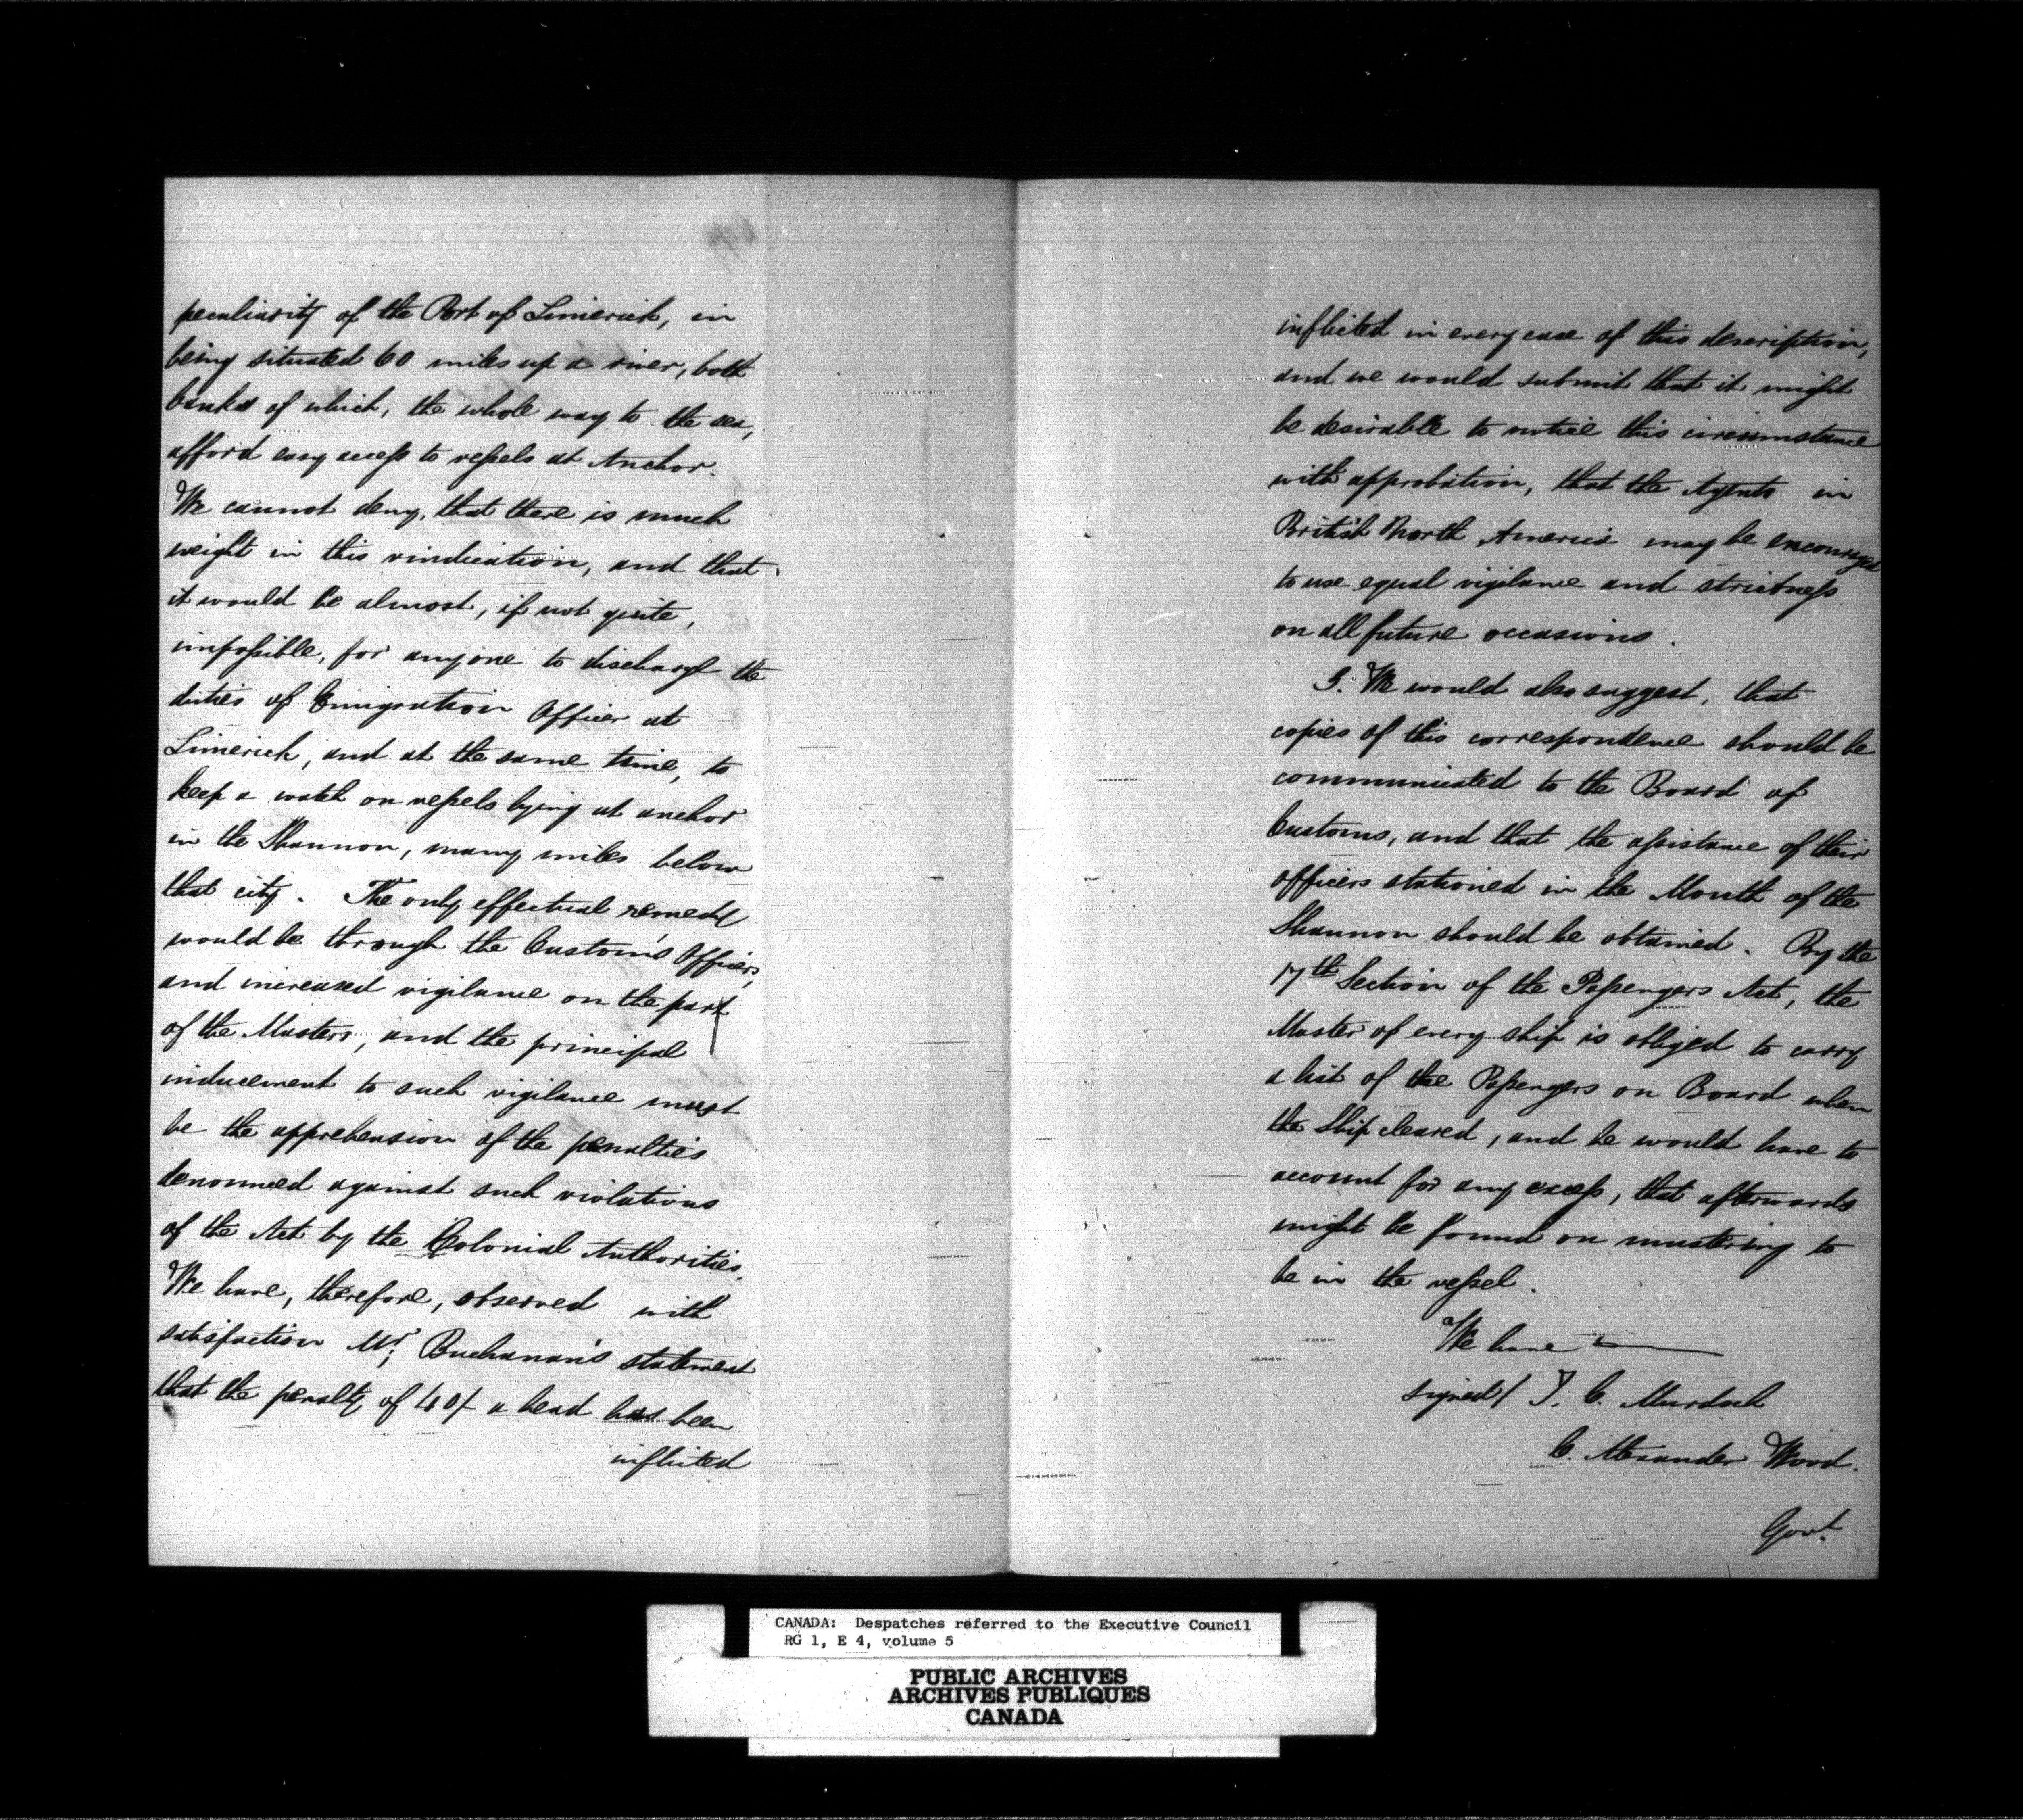 peculiarity of the Port of Limerick, in
being situated 60 miles up a river, both
banks of which, the whole way to the sea,
afford easy access to vessels at Anchor.
We cannot deny, that there is much
weight in this vindication, and that
it would be almost, if not quite,
impossible, for anyone to discharge the
duties of Emigration Officer at
Limerick, and at the same time, to
keep a watch on vessels lying at anchor
in the Shannon, many miles below
that city. The only effectual remedy
would be through the Custom's Officers,
and increased vigilance on the part
of the Masters, and the principal
inducement to such vigilance must
be the apprehension of the penalties
denounced against such violations
of the Act by the Colonial Authorities.
We have, therefore, observed with
satisfaction Mr. Buchanan's statement
that the penalty of 40/- a head has been
inflicted
inflicted in every case of this description,
and we would submit that it might
be desirable to notice this circumstance
with approbation, that the Agents in
British North America may be encouraged
to use equal vigilance and strictness
on all future occasions.
5. We would also suggest, that
copies of this correspondence should be
communicated to the Board of
Customs, and that the assistance of their
officers stationed in the Mouth of the
Shannon should be obtained. By the
17th Section of the Passengers Act, the
Master of every ship is obliged to carry
a list of the Passengers on Board when
the Ship cleared, and he would have to
account for any excess, that afterwards
might be found on mustering to
be in the vessel.
We have
signed/ T. C. Murdoch
C. Alexander Wood.
Govt.
CANADA: Despatches referred to the Executive Council
RG 1, E 4, volume 5
PUBLIC ARCHIVES
ARCHIVES PUBLIQUES
CANADA